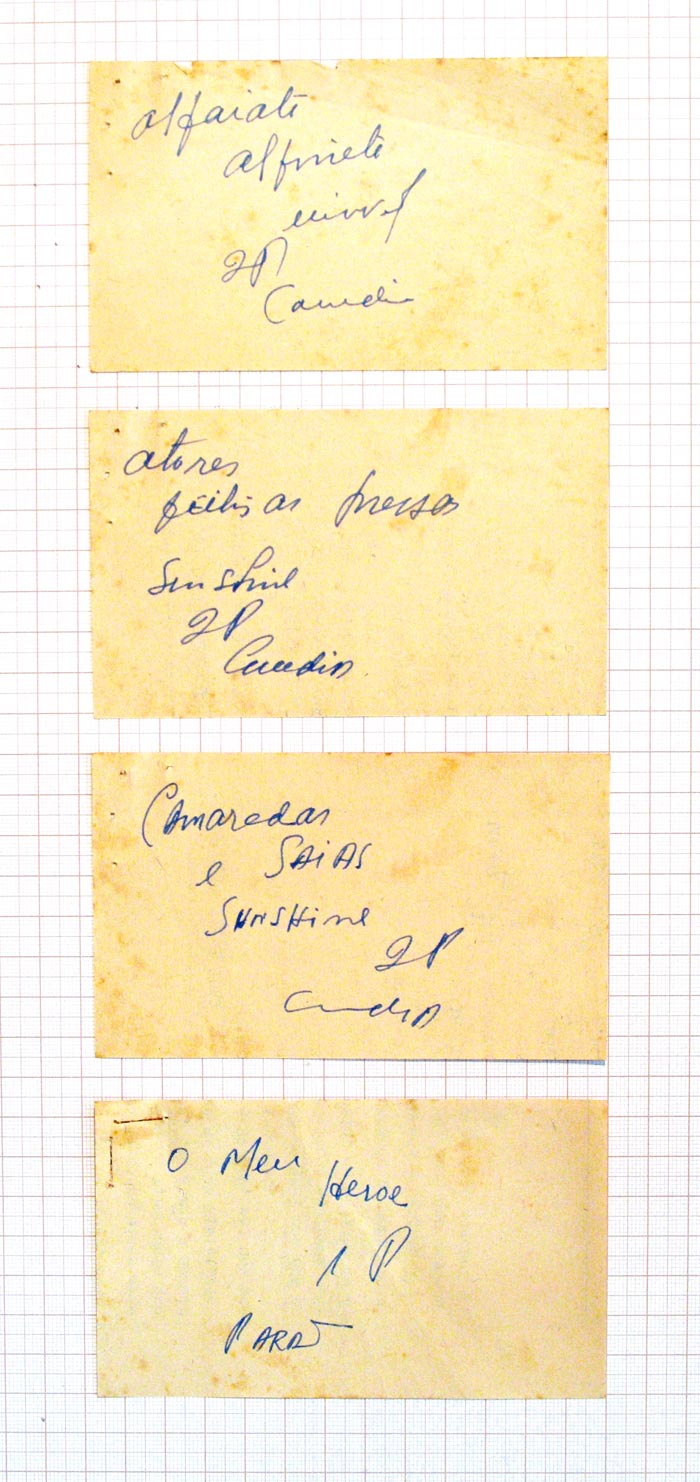 alfaiate
alfinete
2P
Comedia
atores
feitos as pressas
Sunshine
2P
Comedia
Camaradas
e SAiAS
SUNSHine
2P
O Meu
Heroe
1 P